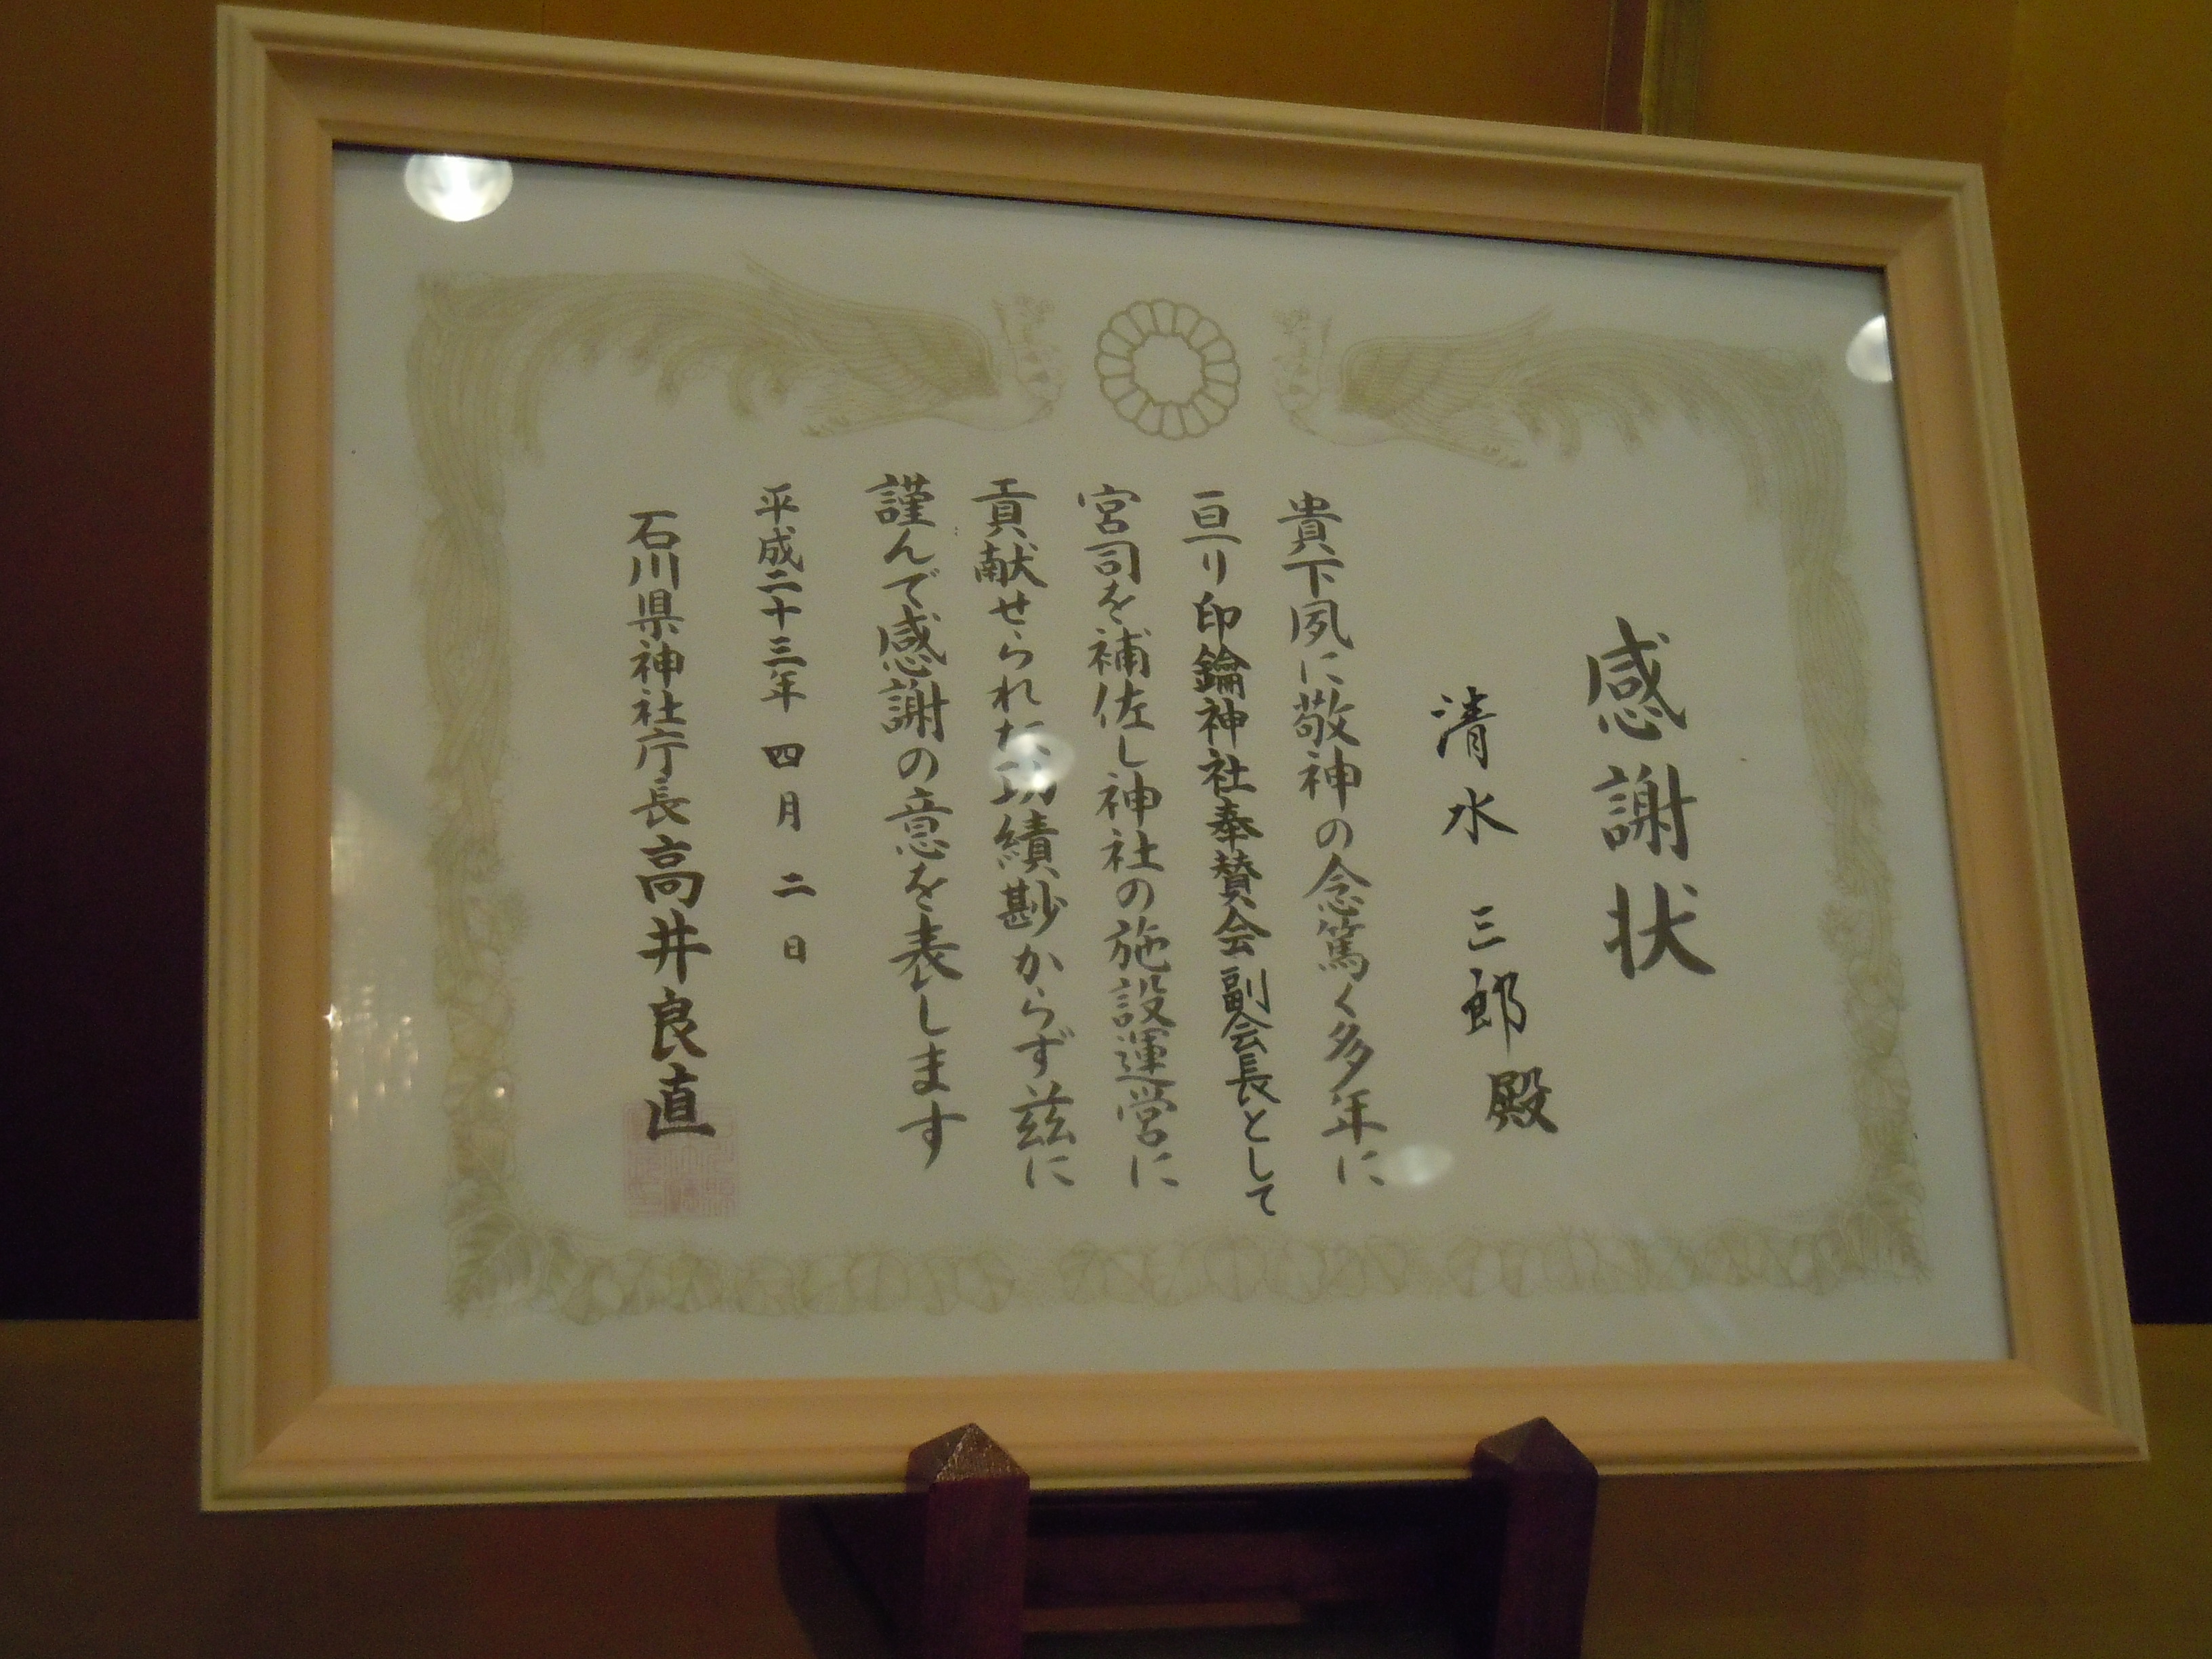 感謝状
清水 三郎 殿
貴下夙に敬神の念篤く多年に
亘り印鑰神社奉賛会副会長として
宮司を補佐し神社の施設運営に
貢献せられた功績尠からず茲に
謹んで感謝の意を表します
平成二十三年 四月 二日
石川県神社庁長 高井良直